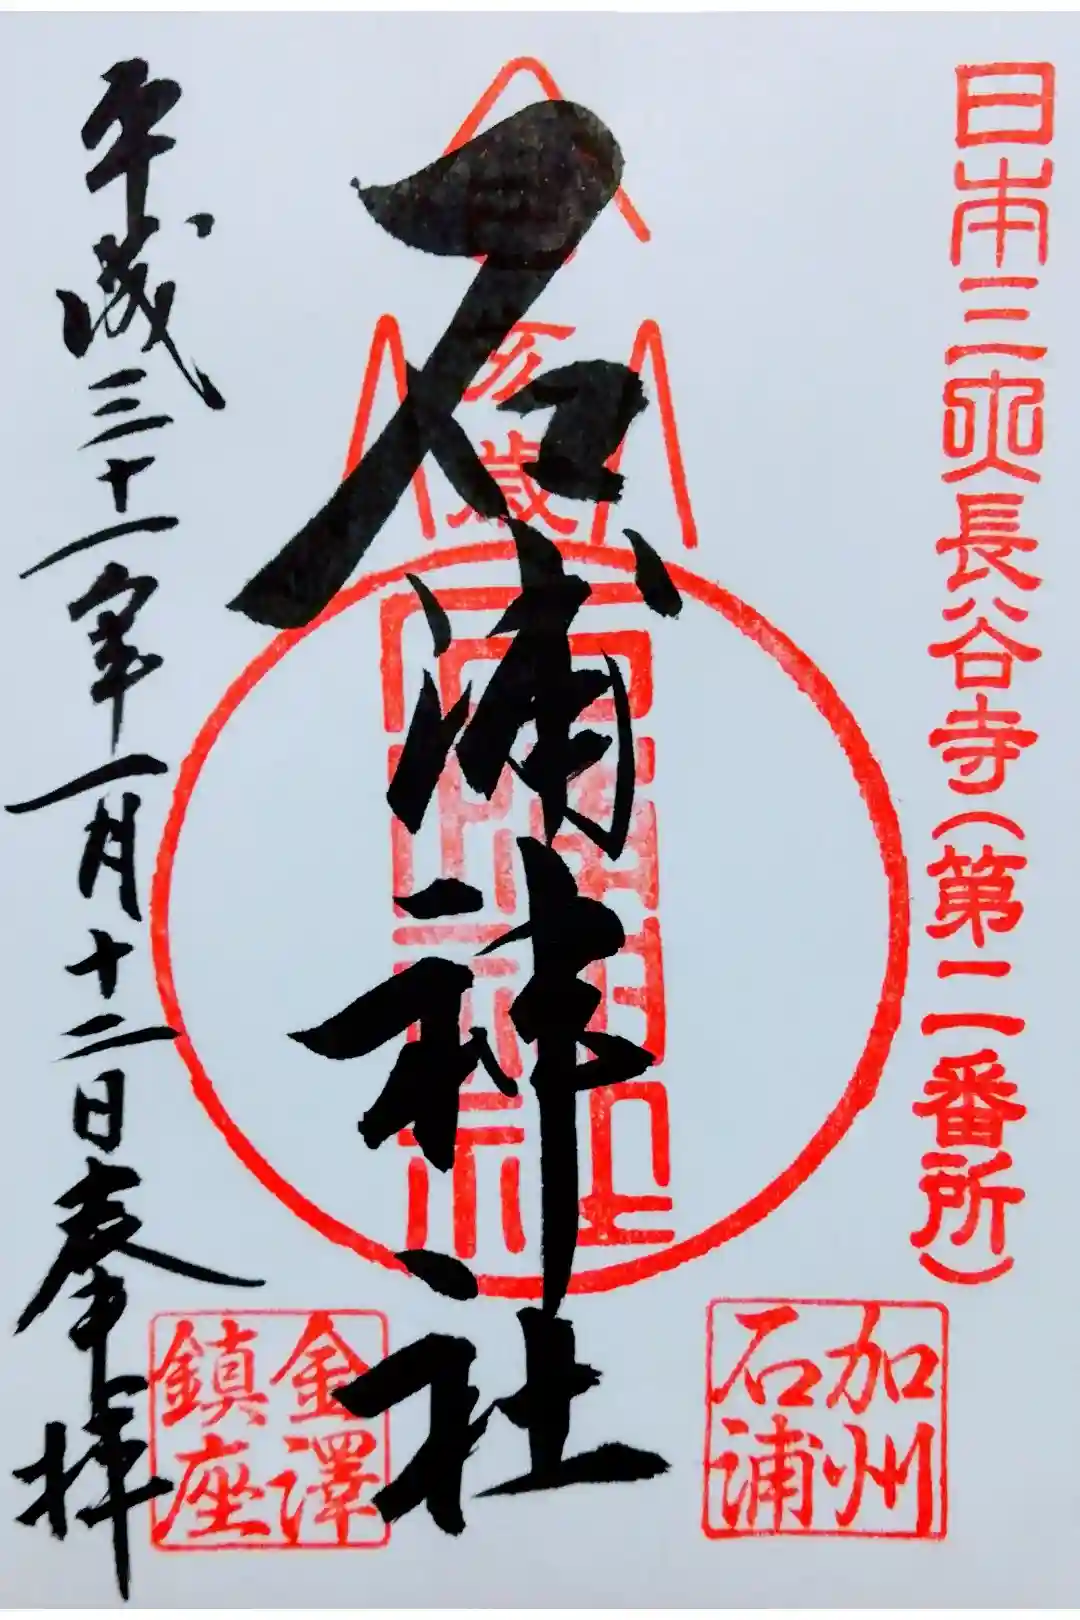 日本三㚑長谷寺(第二番所)
加州
石浦
亥歳
石浦神社
金澤
鎮座
平成三十一年一月十二日奉拝